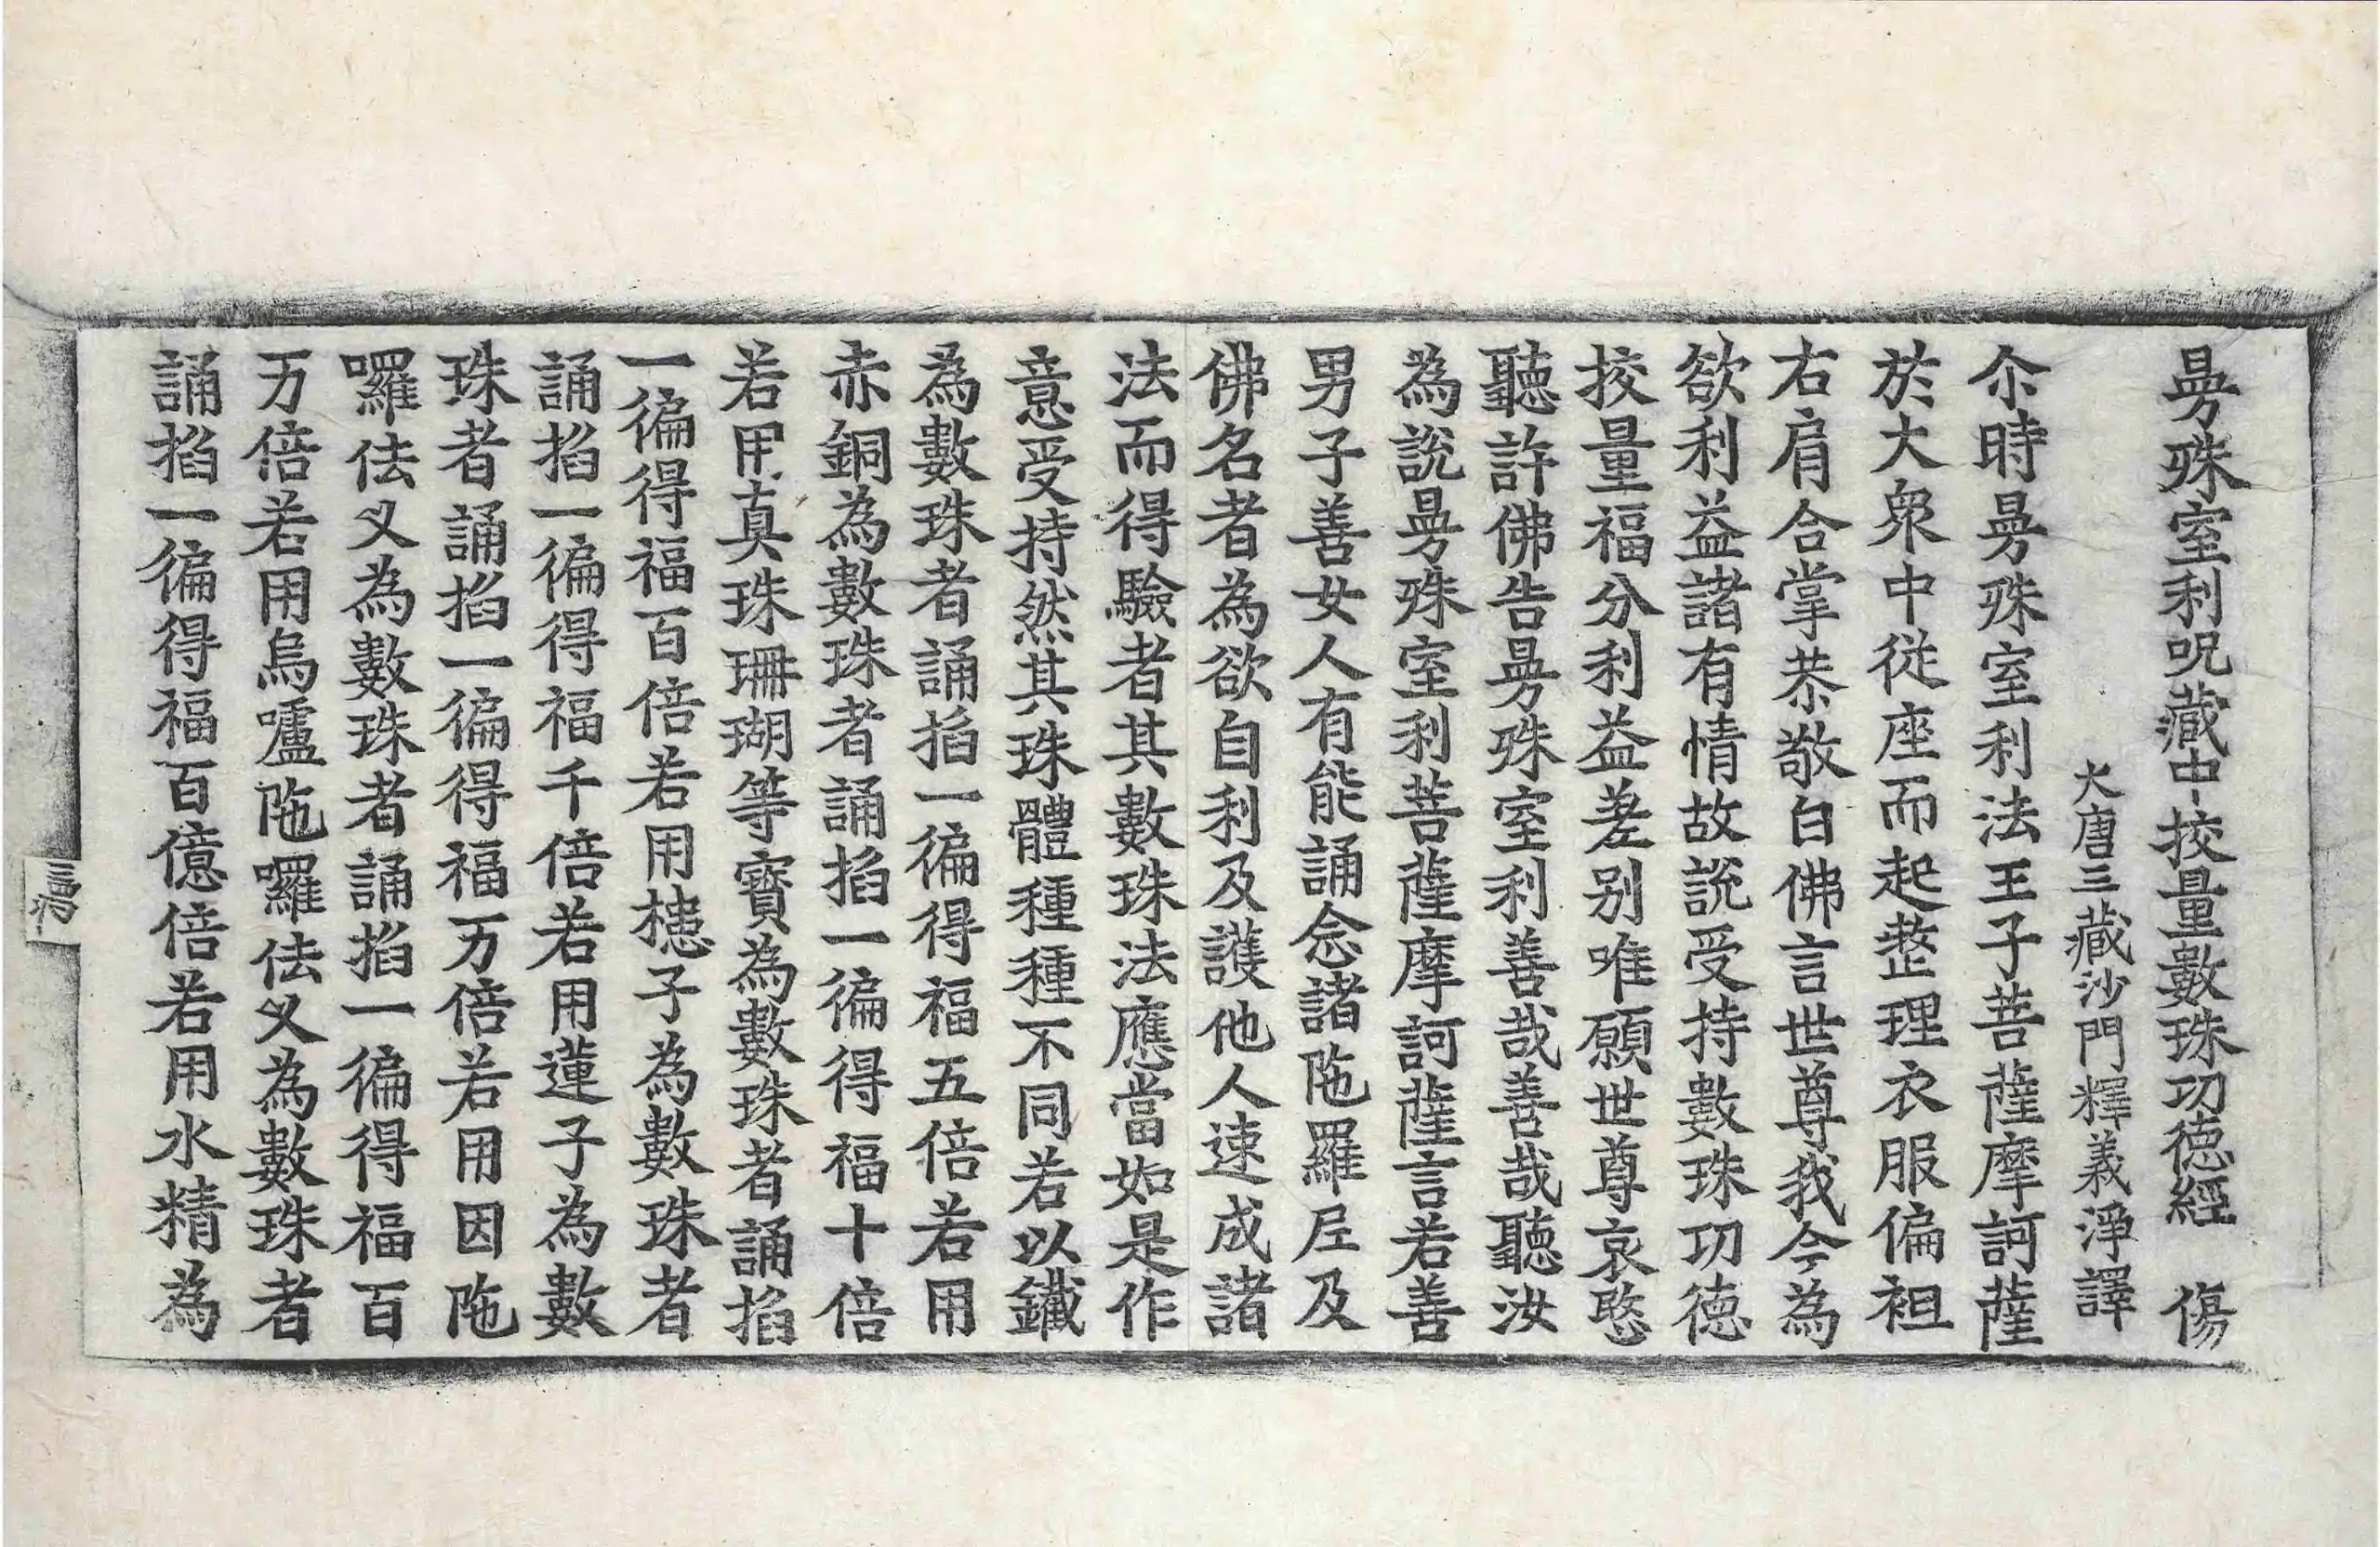 曼殊室利呪藏中挍量數珠功德經 傷
大唐三藏沙門釋義淨譯
尒時曼殊室利法王子菩薩摩訶薩
於大衆中從座而起整理衣服偏袒
右肩合掌恭敬白佛言世尊我今為
欲利益諸有情故說受持數珠功德
挍量福分利益差别唯願世尊哀愍
聽許佛告曼殊室利善哉善哉聽汝
為說曼殊室利菩薩摩訶薩言若善
男子善女人有能誦念諸陁羅尼及
佛名者為欲自利及護他人速成諸
法而得驗者其數珠法應當如是作
意受持然其珠體種種不同若以鐵
為數珠者誦掐一徧得福五倍若用
赤銅為數珠者誦掐一徧得福十倍
若用真珠珊瑚等寶為數珠者誦掐
一徧得福百倍若用槵子為數珠者
誦掐一徧得福千倍若用蓮子為數
珠者誦掐一徧得福万倍若用因陁
囉佉叉為數珠者誦掐一徧得福百
万倍若用烏嚧陁囉佉叉為數珠者
誦掐一徧得福百億倍若用水精為